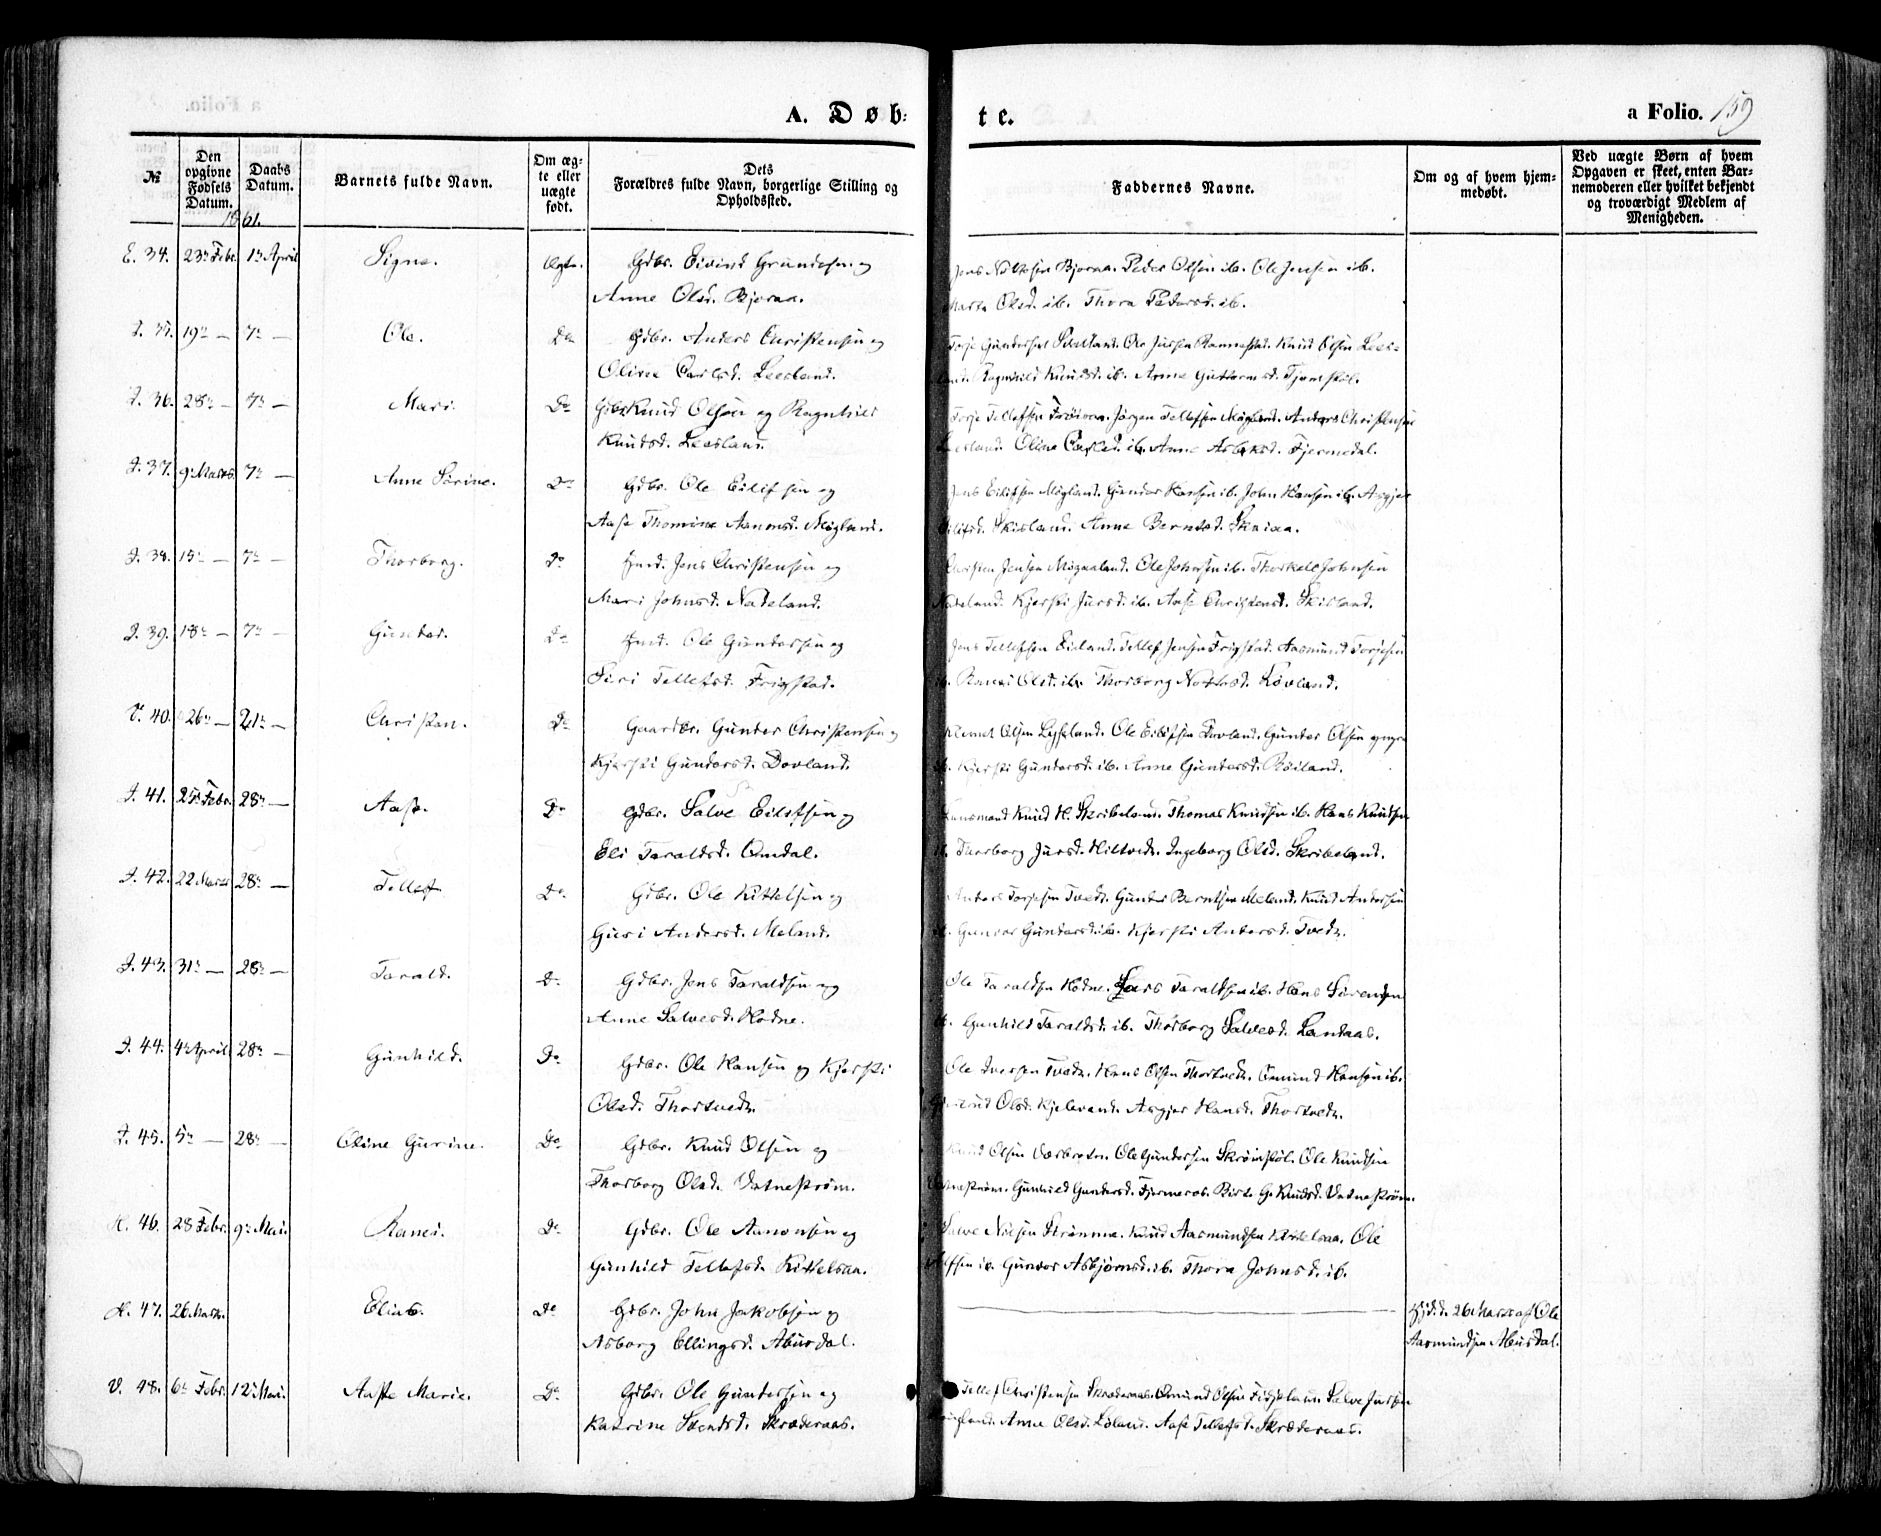 A. Døb-te.
a Folio. 159
№
Den opgivne Fødsels Datum.
Daabs Datum.
Barnets fulde Navn.
Om ægte eller uægte født.
Dets Forældres fulde Navn, borgerlige Stilling og Opholdssted.
Faddernes Navne.
Om og af hvem hjemmedøbt.
Ved uægte Børn af hvem Opgaven er skeet, enten Barnemoderen eller hvilket bekjendt og troværdigt Medlem af Menigheden.
1861.
E. 34. 23de Febr. 1ste April Signe. Ægte. Gdbr. Eivind Gundersen og
Anne Olsd. Bjoraa.
Jens Nilsen Bjoraa. Peder Olsen ib. Ole Jensen ib.
Olsd. ib. Thora Pedersd. ib.
I. 35. 19de — 7de — Ole. Do Gdbr. Anders Christensen og
Oline Carlsd. Leesland.
Torje Gundersen Ole Jursen Rannestad. Knud Olsen Lees-
land. Ragnhild Knudsd. ib. Anne Guttormsd. Tjomstøl.
I. 36. 28de — 7de — Mari. Do Gdbr. Knud Olsen og Ragnhild
Knudsd. Leesland.
Torje Tellefsen Frøivaa. Jørgen Tellefsen Møgland. Anders Christensen
Leesland. Oline Carlsd. ib. Anne Asleksd. Fjermedal.
I. 37. 9de Marts. 7de — Anne Sørine. Do Gdbr. Ole Eilifsen og
Aase Thomine Aanonsd. Møgland.
Jens Eilifsen Møgland. Gunder Hansen ib. John Hansen ib. Asgjer
Eilifsd. Skisland. Anne Berntsd. Skaiaa.
I. 38. 15de — 7de — Thorborg. Do Hmd. Jens Christensen og
Mari Johnsd. Nateland.
Christen Jensen Møgaaland. Ole Johnsen ib. Thorkell Johnsen
Nateland. Kjersti Jursd. ib. Aase Christensd. Skisland.
I. 39. 18de — 7de — Gunder. Do Hmd. Ole Gundersen og
Siri Tellefsd. Frigstad.
Jens Tellefsen Eieland. Tellef Jensen Frigstad. Aasmund Torjesen
ib. Ranei Olsd. ib. Thorborg Løvland.
V. 40. 26de — 21de — Christen. Do Gaardbr. Gunder Christensen og
Kjersti Gundersd. Dovland.
Olsen Ole Eilifsen Dovland. Gunder Olsen
ib. Kjersti Gundersd. ib. Anne Gundersd. Røiland.
I. 41. 25de Febr. 28de — Aase. Do Gdbr. Salve Eilifsen og
Eli Taraldsd. Omdal.
Lensmand Knud H. Skribeland. Thomas Knudsen ib. Hans Knudsen
ib. Thorborg Jursd. Hiltvedt. Ingeborg Olsd. Skribeland.
I. 42. 22 Marts 28de — Tellef. Do Gdbr. Ole Kittelsen og
Guri Andersd. Meland.
Anders Torjesen Tvedt. Gunder Berntsen Meland. Knud Andersen
ib. Gunvor Gundersd. ib. Kjersti Andersd. Tvedt.
I. 43. 31te — 28de — Tarald. Do Gdbr. Jens Taraldsen og
Anne Salvesd. Hodne.
Ole Taraldsen Hodne. Lars Taraldsen ib. Hans Sørensen
ib. Gunhild Taraldsd. ib. Thorborg Salvesd. Landaas.
I. 44. 4de April 28de — Gunhild. Do Gdbr. Ole Hansen og Kjersti
Olsd. Thortvedt.
Ole Iversen Tvedt. Hans Olsen Thortvedt. Omund Hansen ib.
Gjertrud Olsd. Kjelevand. Asgjer Hansd. Thortvedt.
I. 45. 5te — 28de — Oline Gurine. Do Gdbr. Knud Olsen og
Thorborg Olsd. Vatnestrøm.
Knud Olsen Ole Gundersen Skrøimstøl. Ole Knudsen
Vatnestrøm. Gunhild Gundersd. Fjermeros. Birte G. Knudsd. Vatnestrøm.
H. 46. 28 Febr. 9de Mai. Ranei. Do Gdbr. Ole Aanonsen og
Gunhild Tellefsd. Kittelsaa.
Salve Nilsen Strømme. Knud Aasmundsen Kittelsaa. Ole
ib. Gunvor Asbjørnsd. ib. Thora Johnsd. ib.
H. 47. 26 Marts. Elias. Do Gdbr. John Jakobsen og
Asborg Ellingsd. Abusdal.
Hjd. d. 26 Marts af Ole
Aasmundsen Abusdal.
V. 48. 6te Febr. 12te Mai. Aaste Marie. Do Gdbr. Ole Gundersen og
Katrine Svendsd. Skræderaas.
Tellef Christensen Skræderaas. Omund Olsen Salve Jursen
Anne Olsd. Aase Tellefsd. Skræderaas.